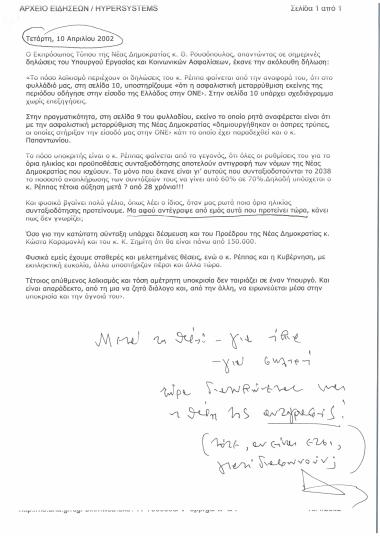 ΑΡΧΕΙΟ ΕΙΔΗΣΕΩΝ / HYPERSYSTEMS Σελίδα 1 από 1
Τετάρτη, 10 Απριλίου 2002
Ο Εκπρόσωπος Τύπου της Νέας Δημοκρατίας κ. Θ. Ρουσόπουλος, απαντώντας σε σημερινές
δηλώσεις του Υπουργού Εργασίας και Κοινωνικών Ασφαλίσεων, έκανε την ακόλουθη δήλωση:
«Το πόσο λαϊκισμό περιέχουν οι δηλώσεις του κ. Ρέππα φαίνεται από την αναφορά του, ότι στο
φυλλάδιό μας, στη σελίδα 10, υποστηρίζουμε «ότι η ασφαλιστική μεταρρύθμιση εκείνης της
περιόδου οδήγησε στην είσοδο της Ελλάδας στην ΟΝΕ». Στην σελίδα 10 υπάρχει σχεδιάγραμμα
χωρίς επεξηγήσεις.
Στην πραγματικότητα, στη σελίδα 9 του φυλλαδίου, εκείνο το οποίο ρητά αναφέρεται είναι ότι
με την ασφαλιστική μεταρρύθμιση της Νέας Δημοκρατίας «δημιουργήθηκαν οι άσπρες τρύπες,
οι οποίες στήριξαν την είσοδό μας στην ΟΝΕ» κάτι το οποίο έχει παραδεχθεί και ο κ.
Παπαντωνίου.
Το πόσο υποκριτής είναι ο κ. Ρέππας φαίνεται από το γεγονός, ότι όλες οι ρυθμίσεις του για τα
όρια ηλικίας και προϋποθέσεις συνταξιοδότησης αποτελούν αντιγραφή των νόμων της Νέας
Δημοκρατίας που ισχύουν. Το μόνο που έκανε είναι γι' αυτούς που συνταξιοδοτούνται το 2038
το ποσοστό αναπλήρωσης των συντάξεών τους να γίνει από 60% σε 70%.Δηλαδή υπόσχεται ο
κ. Ρέππας τέτοια αύξηση μετά 7 από 28 χρόνια!!!
Και φυσικά βγαίνει πολύ γέλιο, όπως λέει ο ίδιος, όταν μας ρωτά ποια όρια ηλικίας
συνταξιοδότησης προτείνουμε. Μα αφού αντέγραψε από εμάς αυτά που προτείνει τώρα, κάνει
πως δεν γνωρίζει;
Όσο για την κατώτατη σύνταξη υπάρχει δέσμευση και του Προέδρου της Νέας Δημοκρατίας κ.
Κώστα Καραμανλή και του κ. Κ. Σημίτη ότι θα είναι πάνω από 150.000.
Φυσικά εμείς έχουμε σταθερές και μελετημένες θέσεις, ενώ ο κ. Ρέππας και η Κυβέρνηση, με
εκπληκτική ευκολία, άλλα υποστήριζαν πέρσι και άλλα τώρα.
Τέτοιος απύθμενος λαϊκισμός και τόση αμέτρητη υποκρισία δεν ταιριάζει σε έναν Υπουργό. Και
είναι απαράδεκτο, από τη μια να ζητά διάλογο και, από την άλλη, να ειρωνεύεται μέσα στην
υποκρισία και την άγνοιά του».
- για
- για
τώρα και
η θέση της αντιγραφής!
(τότε, αν είναι έτσι,
γιατί διαφωνούν;)